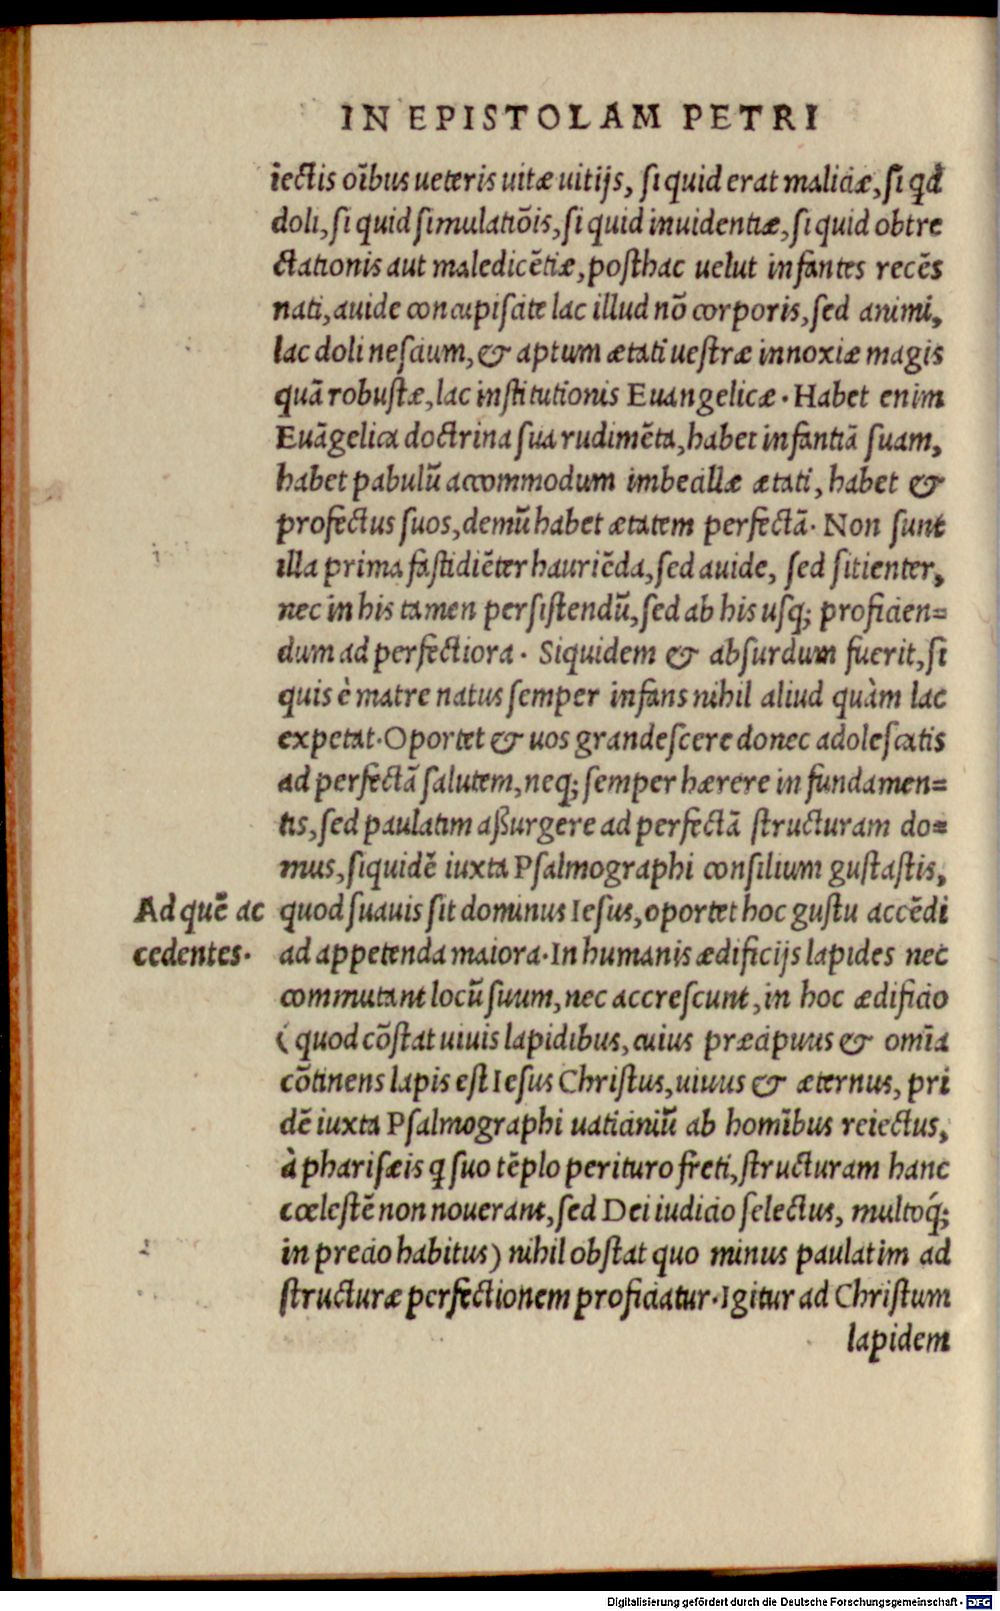 IN EPISTOLAM PETRI
iectis oībus ueteris uitæ uitijs, si quid erat maliciæ, si qd
doli, si quid simulatiōis, si quid inuidentiæ, si quid obtre
ctationis aut maledicētiæ, posthac uelut infantes recēs
nati, auide concupiscite lac illud nō corporis, sed animi,
lac doli nescium, & aptum ætati uestræ innoxiæ magis
quā robustæ, lac institutionis Euangelicæ. Habet enim
Euāgelica doctrina sua rudimēta, habet infantiā suam,
habet pabulū accommodum imbecillæ ætati, habet &
profectus suos, demū habet ætatem perfectā. Non sunt
illa prima fastidiēter hauriēda, sed auide, sed sitienter,
nec in his tamen persistendū, sed ab his usq; proficien=
dum ad perfectiora. Siquidem & absurdum fuerit, si
quis è matre natus semper infans nihil aliud quàm lac
expetat. Oportet & uos grandescere donec adolescatis
ad perfectā salutem, neq; semper hærere in fundamen=
tis, sed paulatim aßurgere ad perfectā structuram do=
mus, siquidē iuxta Psalmographi consilium gustastis,
Ad quē ac
cedentes.
quod suauis sit dominus Iesus, oportet hoc gustu accēdi
ad appetenda maiora. In humanis ædificijs lapides nec
commutant locū suum, nec accrescunt, in hoc ædificio
( quod cōstat uiuis lapidibus, cuius præcipuus & omīa
cōtinens lapis est Iesus Christus, uiuus & æternus, pri
dē iuxta Psalmographi uaticiniū ab homībus reiectus,
à pharisæis q suo tēplo perituro freti, structuram hanc
cœlestē non nouerant, sed Dei iudicio selectus, multoq́;
in precio habitus) nihil obstat quo minus paulatim ad
structuræ perfectionem proficiatur. Igitur ad Christum
lapidem
Digitalisierung gefördert durch die Deutsche Forschungsgemeinschaft - DFG